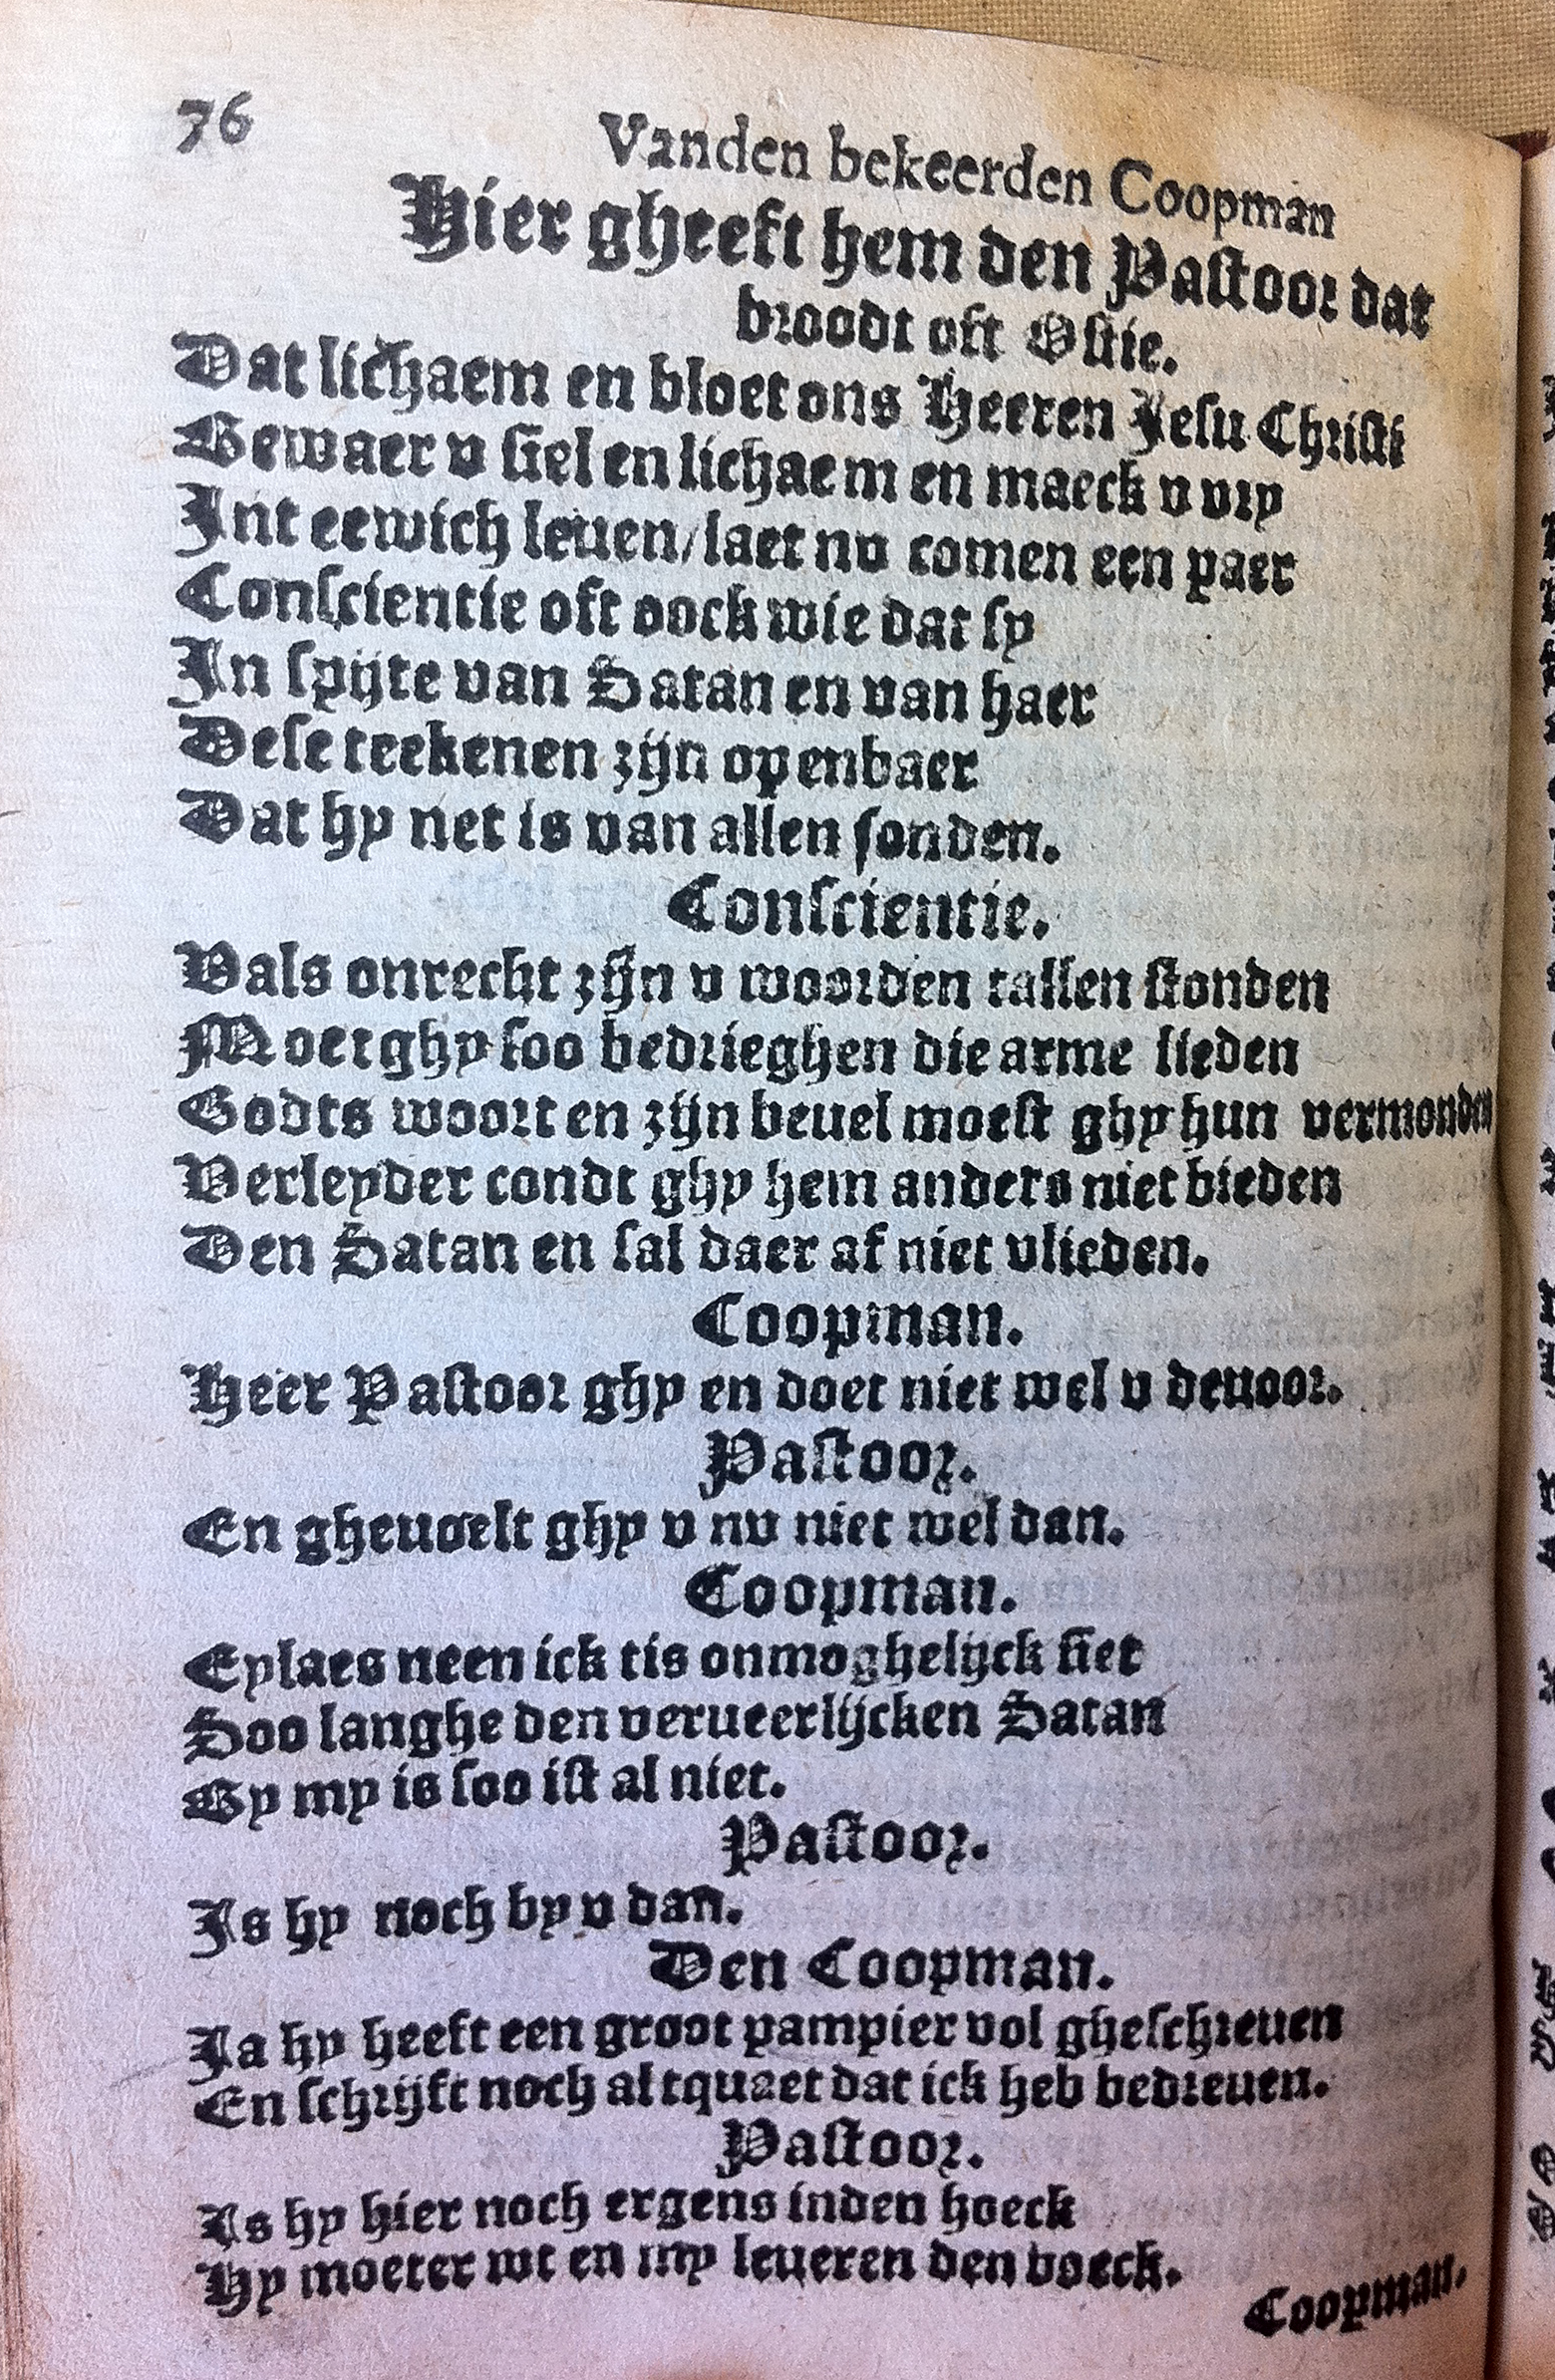 76
Vanden bekeerden Coopman
Hier gheeft hem den Pastoor dat
broodt oft Ostie.
Dat lichaem en bloet ons Heeren Jesu Christi
Bewaer v siel en lichaem en maeck v vry
Int eewich leuen/laet nv comen een paer
Conscientie oft oock wie dat sy
In spijte van Satan en van haer
Dese teekenen zijn openbaer
Dat hy net is van allen sonden.
Conscientie.
Vals onrecht zijn v woorden tallen stonden
Moet ghy soo bedrieghen die arme lieden
Godts woort en zijn beuel moest ghy hun vermonden
Verleyder condt ghy hem anders niet bieden
Den Satan en sal daer af niet vlieden.
Coopman.
Heer Pastoor ghy en doet niet wel v deuoor.
Pastoor.
En gheuoelt ghy v nv niet wel dan.
Coopman.
Eylaes neen ick tis onmoghelijck siet
Soo langhe den verueerlijcken Satan
By my is soo ist al niet.
Pastoor.
Is hy noch by v dan.
Den Coopman.
Ja hy heeft een groot pampier vol gheschreuen
En schrijft noch al tquaet dat ick heb bedreuen.
Pastoor.
Is hy hier noch ergens inden hoeck
Hy moeter wt en my leueren den boeck.
Coopman.